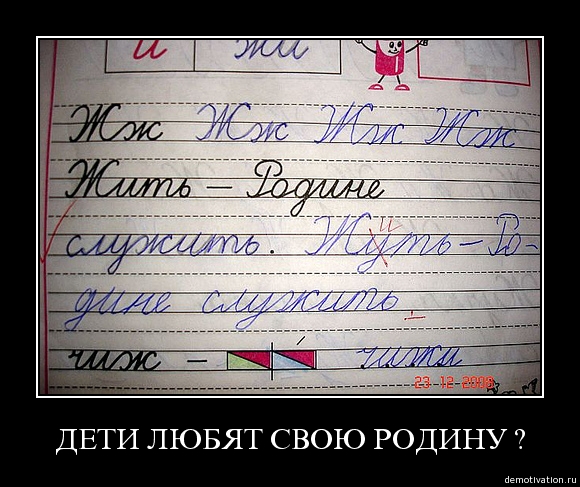 и жи
Жж Жж Жж Жж
Жить – Родине
служить. Жуть – Ро-
и
дине служить
чиж – чижи
23 12 2009
ДЕТИ ЛЮБЯТ СВОЮ РОДИНУ ?
demotivation.ru